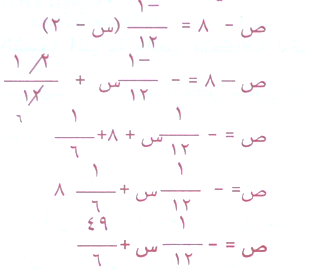 ص - ٨ = -١/١٢ (س - ٢)
ص - ٨ = -١/١٢ س + ١ ٢/١٢ ٦
ص = - ١/١٢ س + ٨ + ١/٦
ص = - ١/١٢ س + ١/٦ ٨
ص = - ١/١٢ س + ٤٩/٦